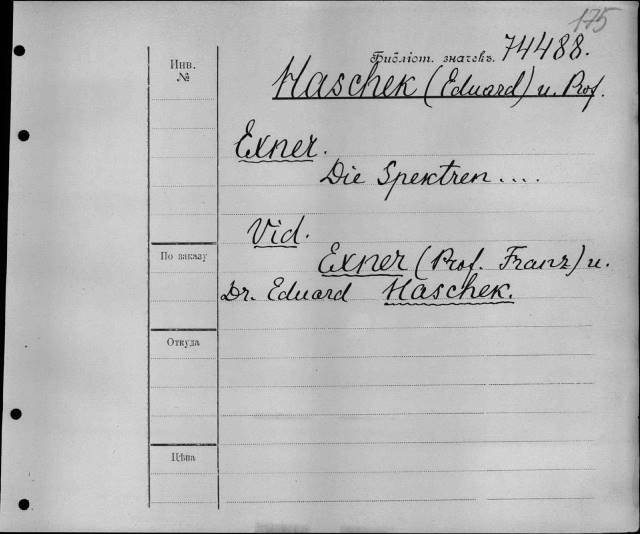 175
Инв.
№
Библіот. значекъ. 74488.
Haschek (Eduard) u. Prof.
Exner.
Die Spektren....
Vid.
По заказу
Exner (Prof. Franz) u.
Dr. Eduard Haschek.
Откуда
Цѣна